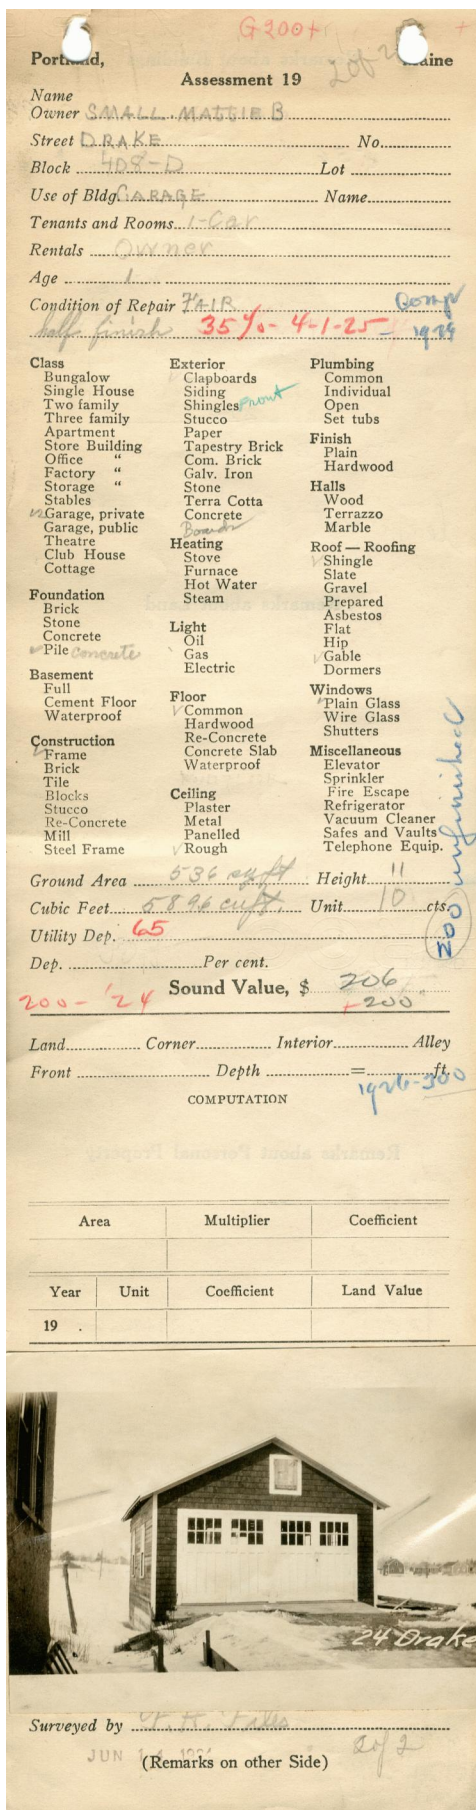 G200+
Portland, Maine
2 of 2
Assessment 19
Name
Owner SMALL MATTIE B
Street DRAKE No.
Block 408-D Lot
Use of Bldg. GARAGE Name
Tenants and Rooms 1-Car
Rentals Owner
Age 1
Condition of Repair FAIR Comp
half finish 35% - 4-1-25 - 1929
Class
Bungalow
Single House
Two family
Three family
Apartment
Store Building
Office "
Factory "
Storage "
Stables
Garage, private
Garage, public
Theatre
Club House
Cottage
Foundation
Brick
Stone
Concrete
Pile concrete
Basement
Full
Cement Floor
Waterproof
Construction
Frame
Brick
Tile
Blocks
Stucco
Re-Concrete
Mill
Steel Frame
Exterior
Clapboards
Siding
Shingles Front
Stucco
Paper
Tapestry Brick
Com. Brick
Galv. Iron
Stone
Terra Cotta
Concrete
Boards
Heating
Stove
Furnace
Hot Water
Steam
Light
Oil
Gas
Electric
Floor
Common
Hardwood
Re-Concrete
Concrete Slab
Waterproof
Ceiling
Plaster
Metal
Panelled
Rough
Plumbing
Common
Individual
Open
Set tubs
Finish
Plain
Hardwood
Halls
Wood
Terrazzo
Marble
Roof — Roofing
Shingle
Slate
Gravel
Prepared
Asbestos
Flat
Hip
Gable
Dormers
Windows
Plain Glass
Wire Glass
Shutters
Miscellaneous
Elevator
Sprinkler
Fire Escape
Refrigerator
Vacuum Cleaner
Safes and Vaults
Telephone Equip.
200 unfinished
Ground Area 536 sq ft Height 11
Cubic Feet 5896 cu ft. Unit 10 cts.
Utility Dep. 65
Dep. Per cent.
Sound Value, $ 206
200 - '24 +200
Land Corner Interior Alley
Front Depth = ft.
1926-300
COMPUTATION
Area Multiplier Coefficient
Year Unit Coefficient Land Value
19 .
24 Drake
Surveyed by
JUN
2 of 2
(Remarks on other Side)